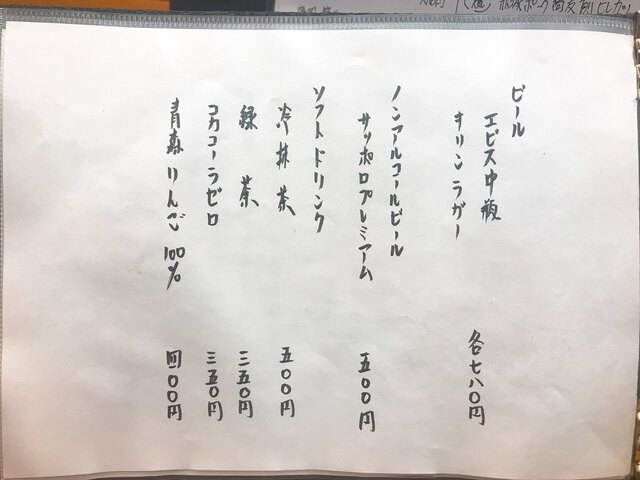 ビール
エビス中瓶
キリンラガー
各七八〇円
ノンアルコールビール
サッポロプレミアム 五〇〇円
ソフトドリンク
冷抹茶 五〇〇円
緑茶 三五〇円
コカコーラゼロ 三五〇円
青森りんご100% 四〇〇円